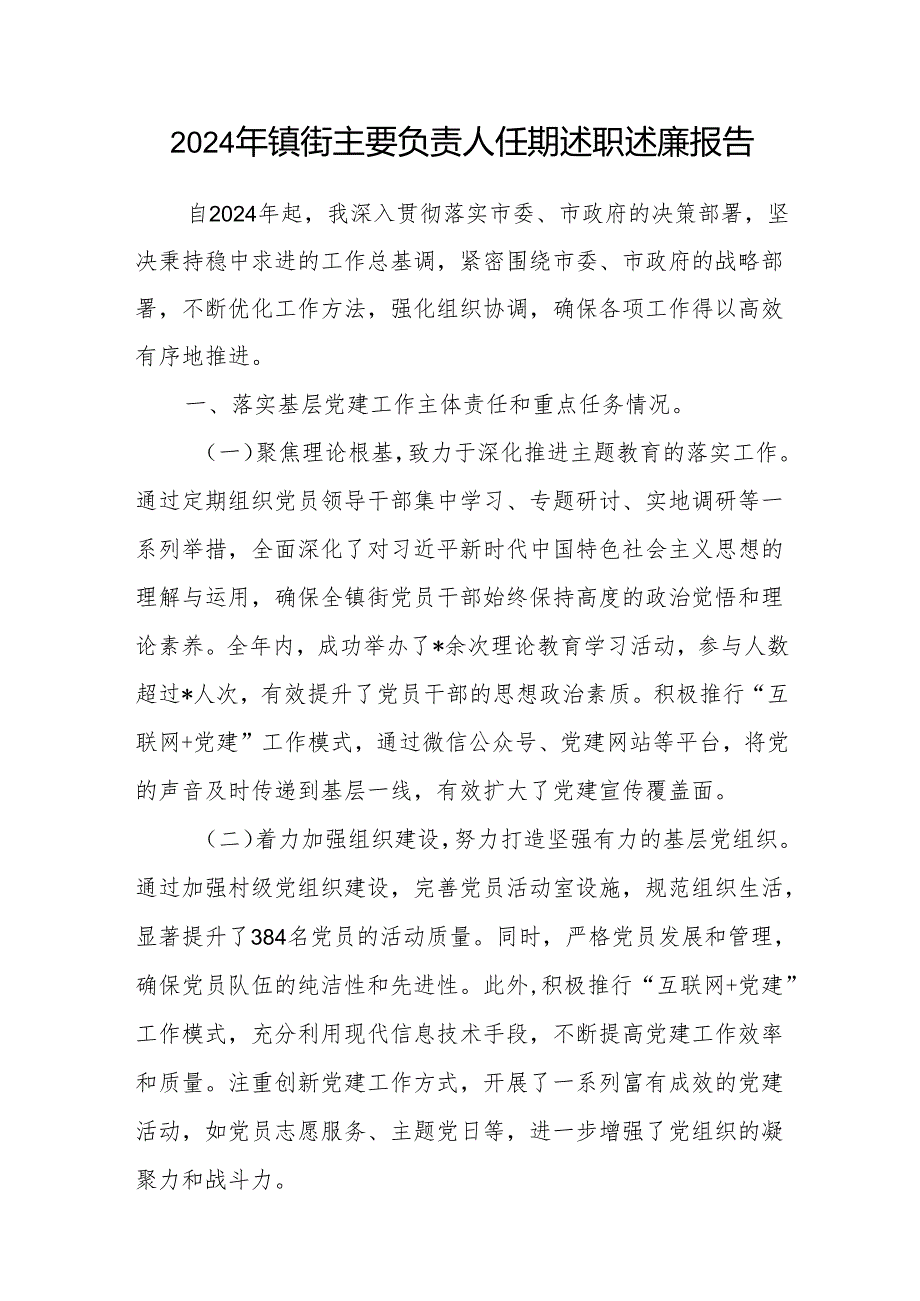 2024年镇街主要负责人任期述职述廉报告
自2024年起，我深入贯彻落实市委、市政府的决策部署，坚
决秉持稳中求进的工作总基调，紧密围绕市委、市政府的战略部
署，不断优化工作方法，强化组织协调，确保各项工作得以高效
有序地推进。
一、落实基层党建工作主体责任和重点任务情况。
（一）聚焦理论根基，致力于深化推进主题教育的落实工作。
通过定期组织党员领导干部集中学习、专题研讨、实地调研等一
系列举措，全面深化了对习近平新时代中国特色社会主义思想的
理解与运用，确保全镇街党员干部始终保持高度的政治觉悟和理
论素养。全年内，成功举办了*余次理论教育学习活动，参与人数
超过*人次，有效提升了党员干部的思想政治素质。积极推行“互
联网+党建”工作模式，通过微信公众号、党建网站等平台，将党
的声音及时传递到基层一线，有效扩大了党建宣传覆盖面。
（二）着力加强组织建设，努力打造坚强有力的基层党组织。
通过加强村级党组织建设，完善党员活动室设施，规范组织生活，
显著提升了384名党员的活动质量。同时，严格党员发展和管理，
确保党员队伍的纯洁性和先进性。此外,积极推行“互联网+党建”
工作模式，充分利用现代信息技术手段，不断提高党建工作效率
和质量。注重创新党建工作方式，开展了一系列富有成效的党建
活动，如党员志愿服务、主题党日等，进一步增强了党组织的凝
聚力和战斗力。